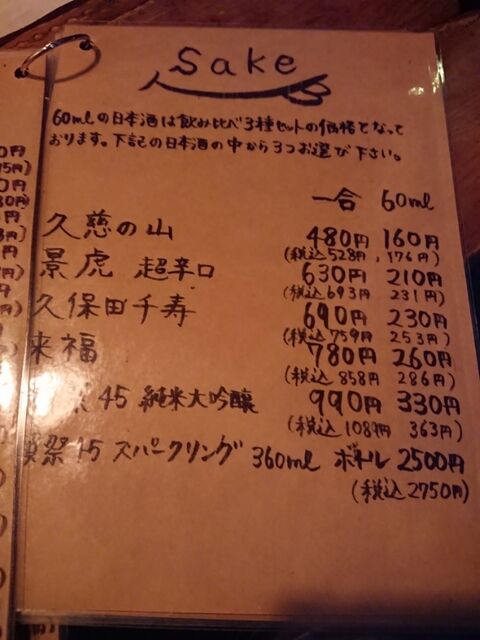 Sake
60mlの日本酒は飲み比べ3種セットの価格となって
おります。下記の日本酒の中から3つお選び下さい。
一合 60ml
久慈の山 480円 160円
(税込528円, 176円)
景虎 超辛口 630円 210円
(税込693円 231円)
久保田千寿 690円 230円
(税込759円 253円)
来福 780円 260円
(税込858円 286円)
45 純米大吟醸 990円 330円
(税込1089円 363円)
祭45 スパークリング 360ml ボトル 2500円
(税込2750円)